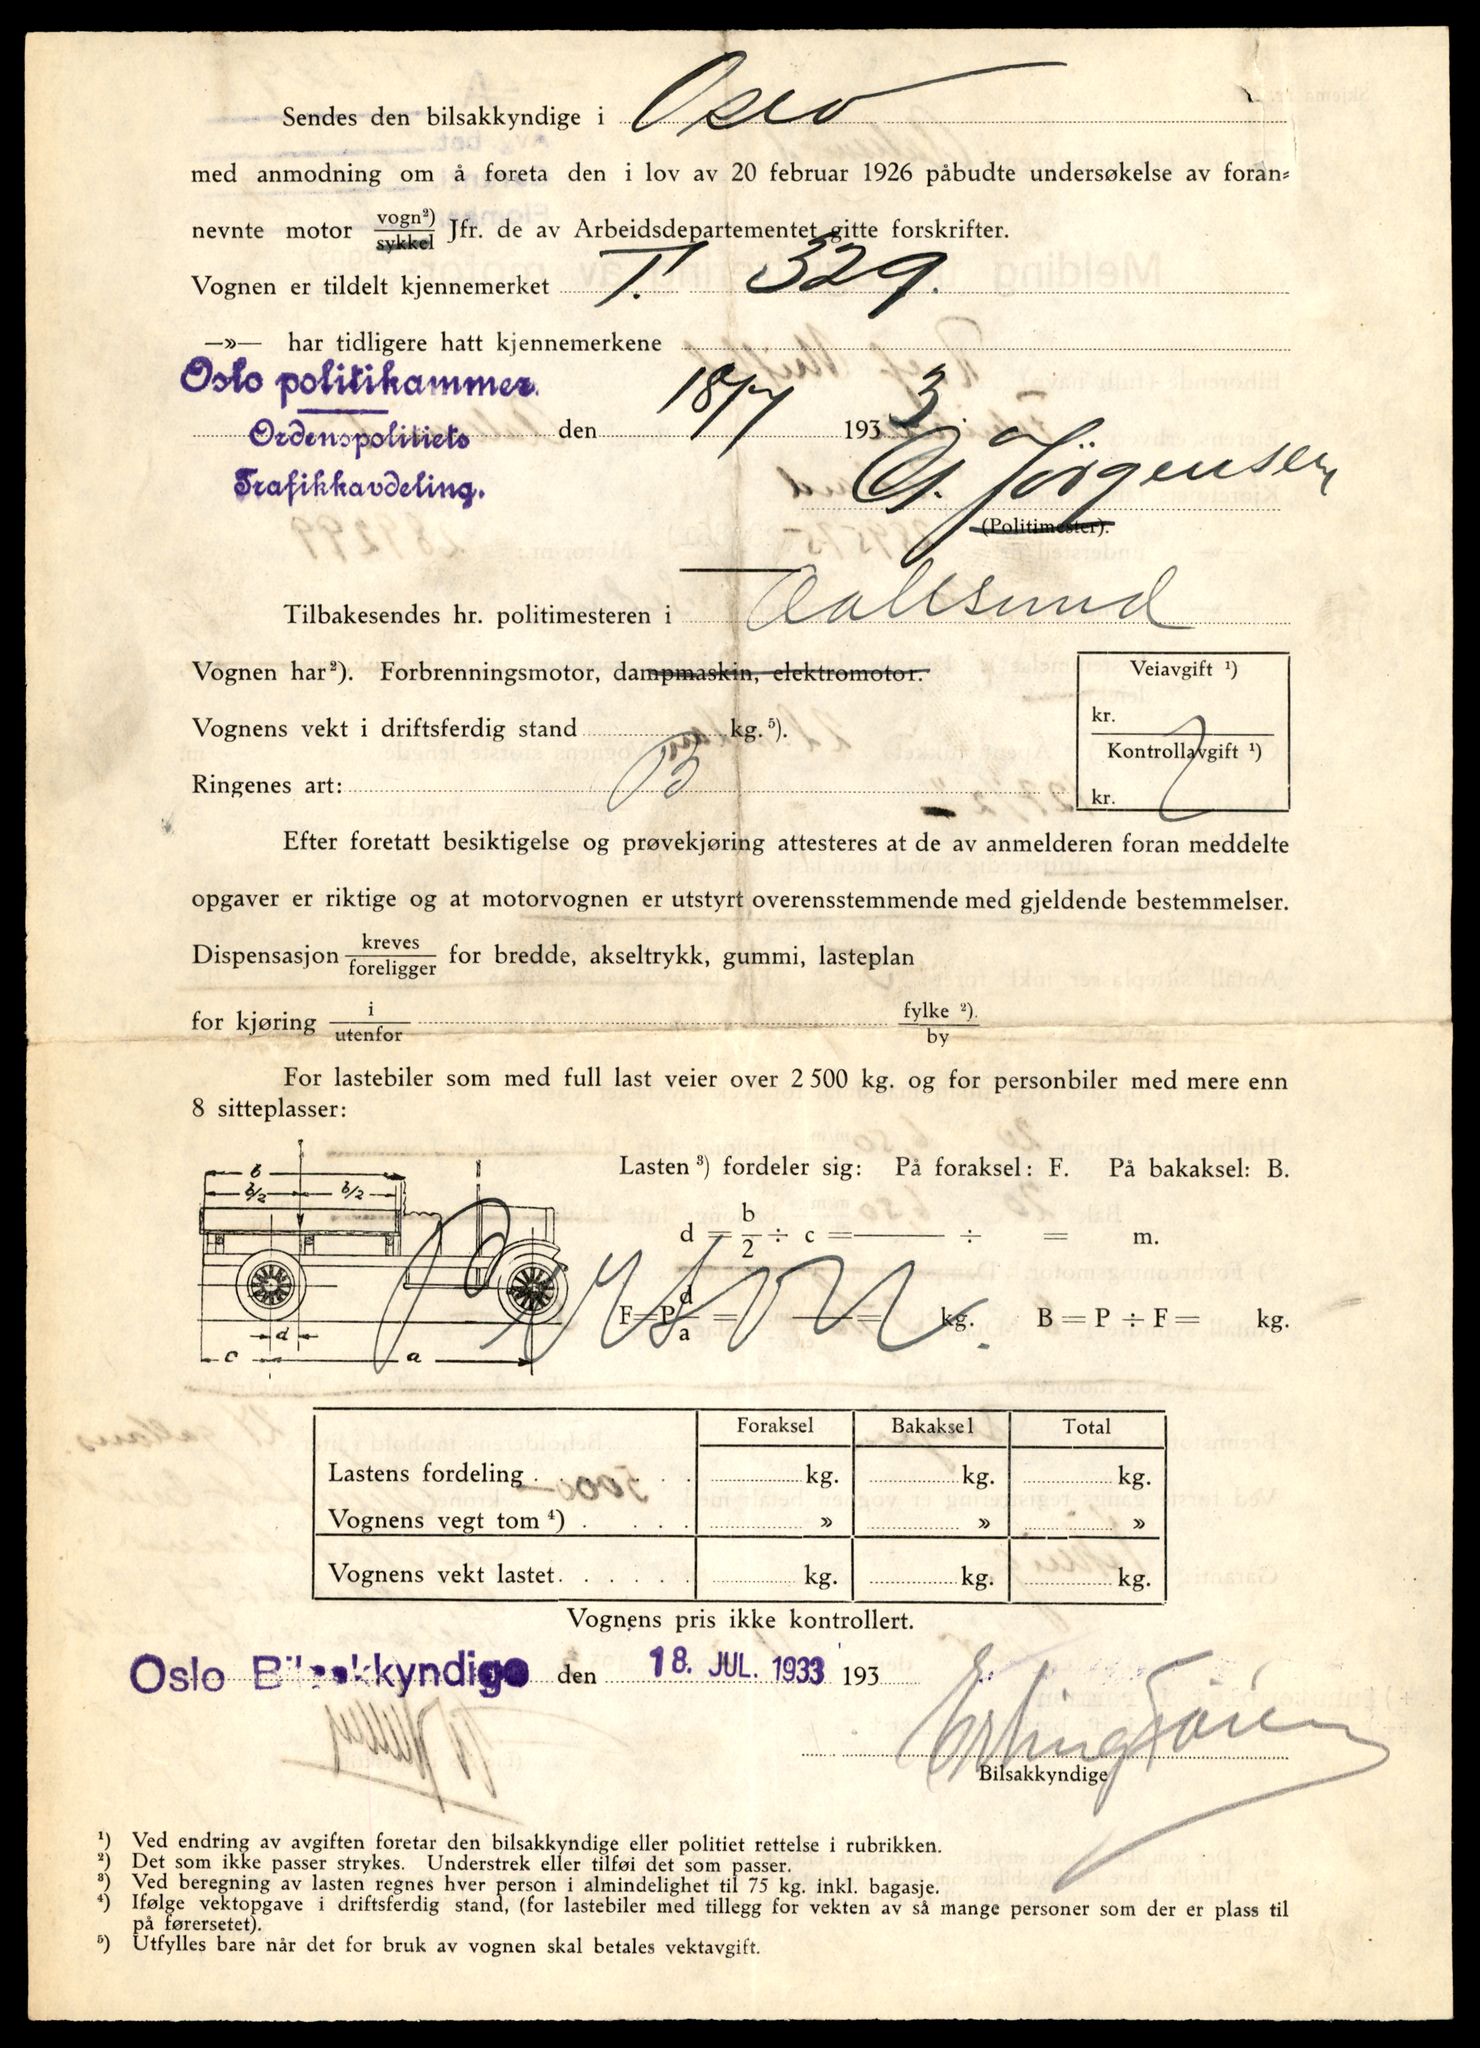 Sendes den bilsakkyndige i Oslo
med anmodning om å foreta den i lov av 20 februar 1926 påbudte undersøkelse av foran=
nevnte motor vogn²) / sykkel Jfr. de av Arbeidsdepartementet gitte forskrifter.
Vognen er tildelt kjennemerket T. 329.
—»— har tidligere hatt kjennemerkene
Oslo politikammer.
Ordenspolitiets
Trafikkavdeling.
den 18/7 1933.
Jörgensen
(Politimester).
Tilbakesendes hr. politimesteren i Aalesund
Vognen har²). Forbrenningsmotor, dampmaskin, elektromotor.
Vognens vekt i driftsferdig stand kg.⁵).
Ringenes art: B
Veiavgift ¹)
kr.
Kontrollavgift ¹)
kr.
Efter foretatt besiktigelse og prøvekjøring attesteres at de av anmelderen foran meddelte
opgaver er riktige og at motorvognen er utstyrt overensstemmende med gjeldende bestemmelser.
Dispensasjon kreves / foreligger for bredde, akseltrykk, gummi, lasteplan
for kjøring i / utenfor fylke ²). / by
For lastebiler som med full last veier over 2 500 kg. og for personbiler med mere enn
8 sitteplasser:
b
b/2 b/2
d
c a
Lasten ³) fordeler sig: På foraksel: F. På bakaksel: B.
d = b/2 ÷ c = ÷ = m.
F = P d/a = = kg. B = P ÷ F = kg.
Person.
Foraksel Bakaksel Total
Lastens fordeling . . . . kg. kg. kg.
Vognens vegt tom ⁴) . . . . » » »
Vognens vekt lastet. . . . . . kg. kg. kg.
Vognens pris ikke kontrollert.
Oslo Bilsakkyndige den 18. JUL. 1933 193
Erling
Bilsakkyndige
¹) Ved endring av avgiften foretar den bilsakkyndige eller politiet rettelse i rubrikken.
²) Det som ikke passer strykes. Understrek eller tilføi det som passer.
³) Ved beregning av lasten regnes hver person i almindelighet til 75 kg. inkl. bagasje.
⁴) Ifølge vektopgave i driftsferdig stand, (for lastebiler med tillegg for vekten av så mange personer som der er plass til
på førersetet).
⁵) Utfylles bare når det for bruk av vognen skal betales vektavgift.